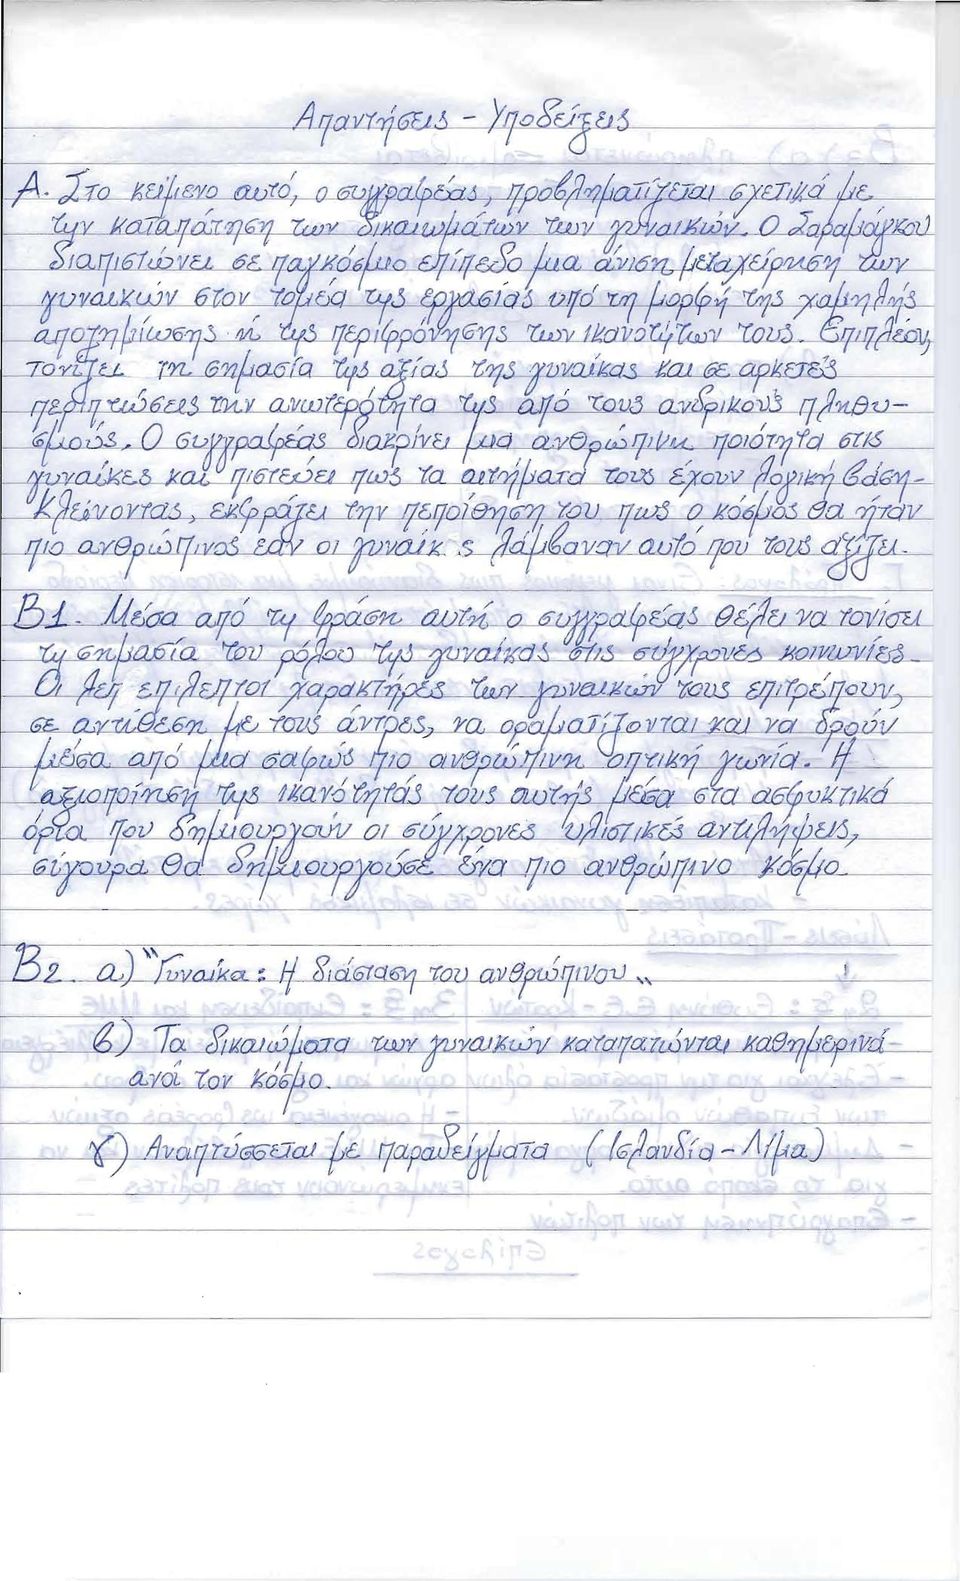 Απαντήσεις - Υποδείξεις
Α. Στο κείμενο αυτό, ο συγγραφέας, προβληματίζεται σχετικά με
την καταπάτηση των δικαιωμάτων των γυναικών. Ο Σαραμάγκου
διαπιστώνει σε παγκόσμιο επίπεδο μια άνιση μεταχείρηση των
γυναικών στον τομέα της εργασίας υπό τη μορφή της χαμηλής
αποζημίωσης ή της περιφρόνησης των ικανοτήτων τους. Επιπλέον,
τονίζει τη σημασία της αξίας της γυναίκας και σε αρκετές
περιπτώσεις την ανωτερότητα της από τους ανδρικούς πληθυ-
σμούς. Ο συγγραφέας διακρίνει μια ανθρώπινη ποιότητα στις
γυναίκες και πιστεύει πως τα αιτήματα τους έχουν λογική βάση.
Κλείνοντας, εκφράζει την πεποίθηση του πως ο κόσμος θα ήταν
πιο ανθρώπινος εάν οι γυναίκ ς λάμβαναν αυτό που τους αξίζει.
Β1. Μέσα από τη φράση αυτή ο συγγραφέας θέλει να τονίσει
τη σημασία του ρόλου της γυναίκας στις σύγχρονες κοινωνίες.
Οι λεπ επιλεπτοι χαρακτήρες των γυναικών τους επιτρέπουν,
σε αντίθεση με τους άντρες, να οραματίζονται και να δρούν
μέσα από μια σαφώς πιο ανθρώπινη οπτική γωνία. Η
αξιοποίηση της ικανότητάς τους αυτής μέσα στα ασφυκτικά
όρια που δημιουργούν οι σύγχρονες υλιστικές αντιλήψεις,
σίγουρα θα δημιουργούσε ένα πιο ανθρώπινο κόσμο.
Β2. α) "Γυναίκα: Η διάσταση του ανθρώπινου"
β) Τα δικαιώματα των γυναικών καταπατώνται καθημερινά
ανά τον κόσμο.
γ) Αναπτύσσεται με παραδείγματα (Ισλανδία - Λίμα)